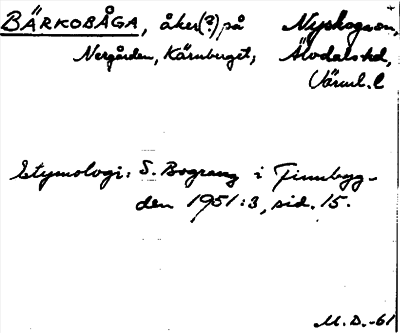 BÄRKOBÅGA, åker(?) på Nyskogaön,
Nergården, Kärnberget, Älvdals hd,
Värml. l
Etymologi: S. Bograng i Finnbyg-
den 1951:3, sid. 15.
M. D. -61